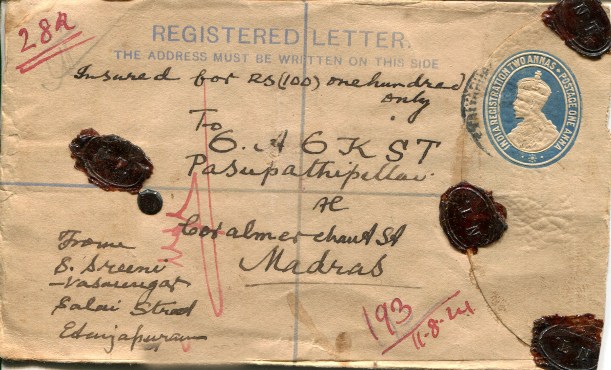 28R
REGISTERED LETTER.
THE ADDRESS MUST BE WRITTEN ON THIS SIDE
INDIA REGISTRATION TWO ANNAS • POSTAGE ONE ANNA
Insured for Rs (100) one hundred
only
To
K S T
Pasupathipillai
Coralmerchant St
Madras
From
S. Sreeni
vasaiengar
Salai Street
193
11-8-24